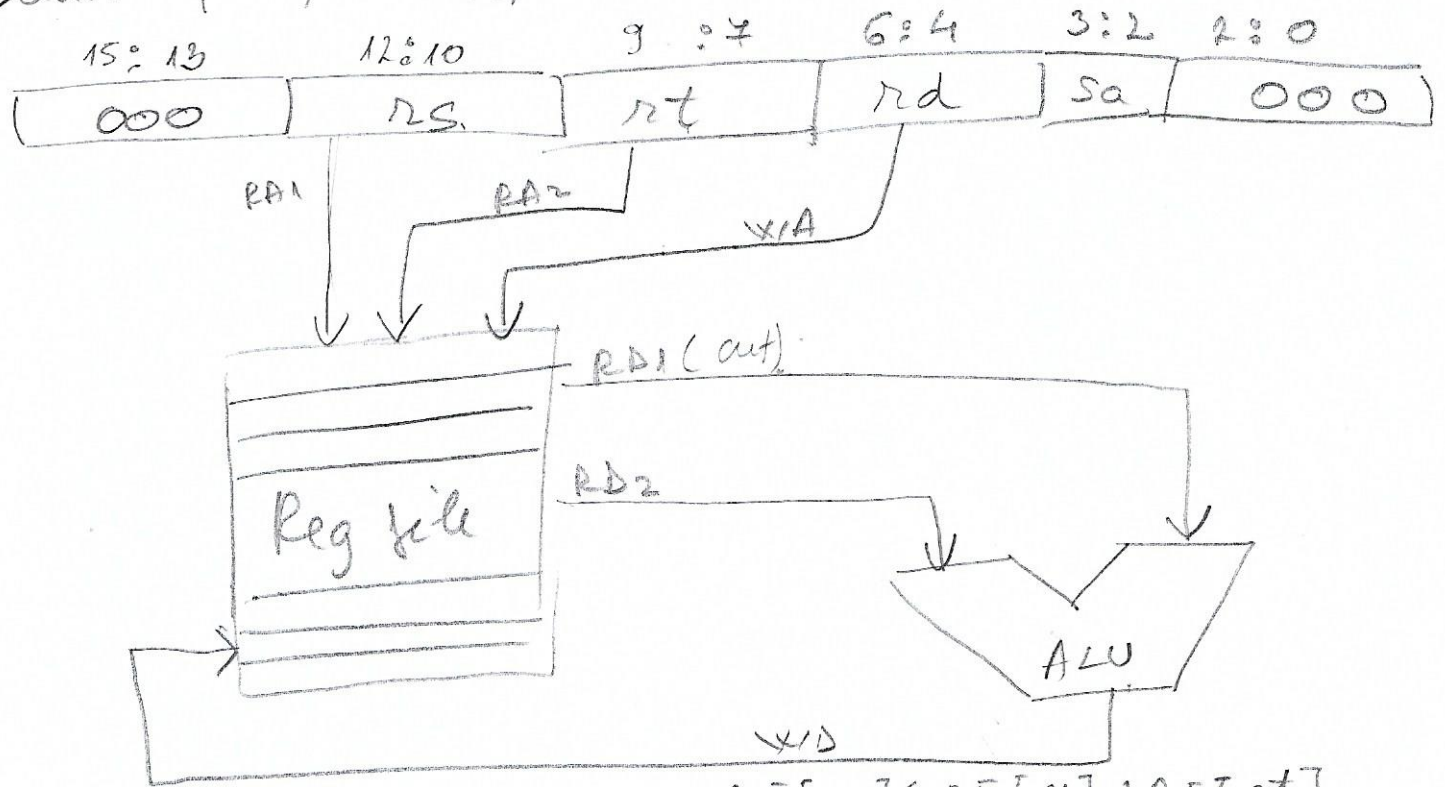 15:13 12:10 9:7 6:4 3:2 2:0
000 rs rt rd sa 000
RA1 RA2
WA
RD1 (out)
RD2
Reg file
ALU
WD